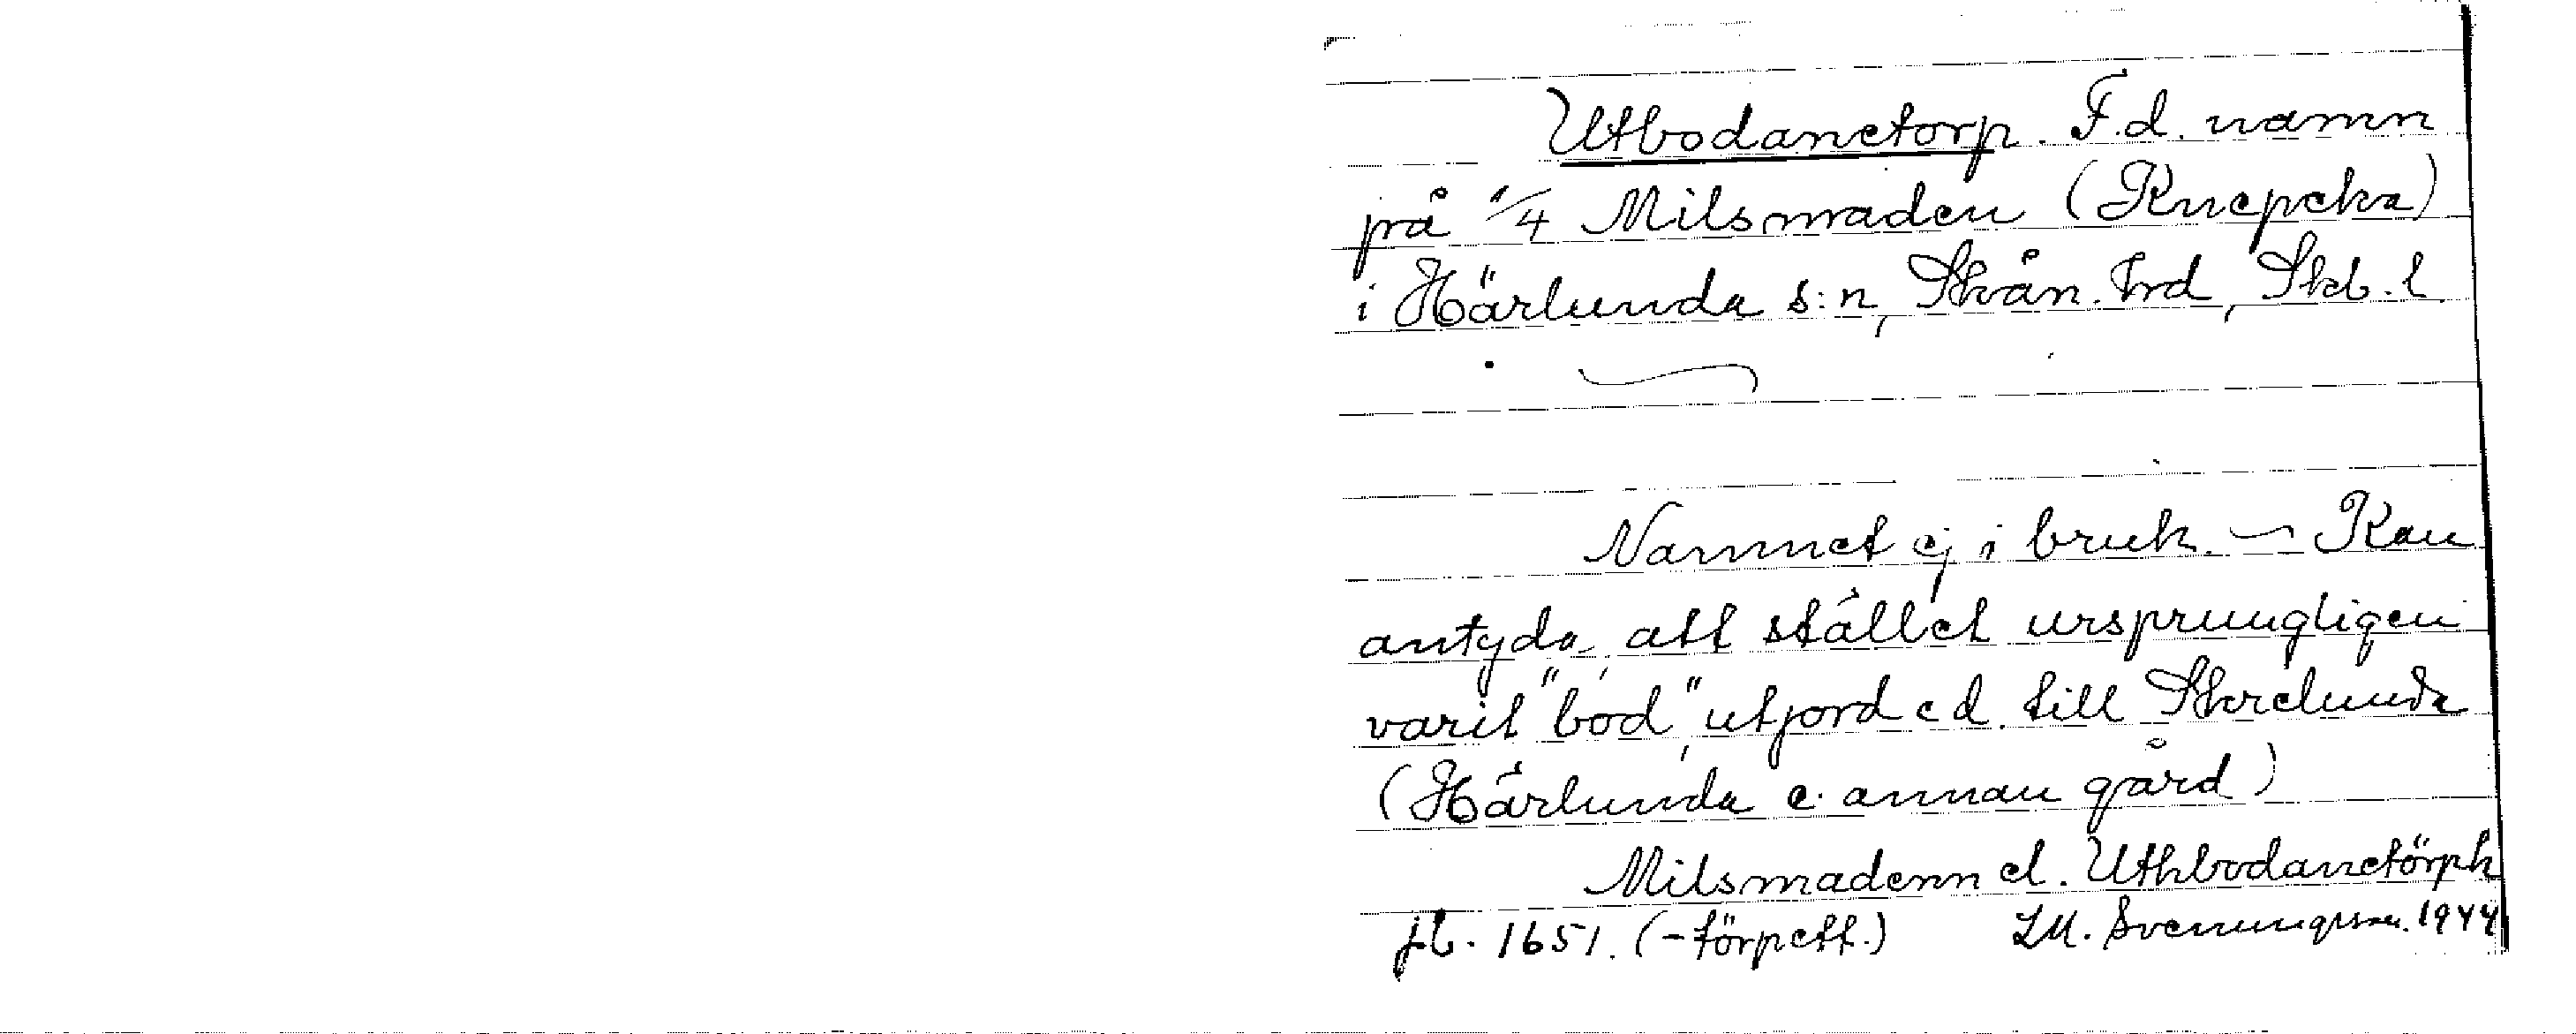 Utbodanetorp. F.d. namn
på 1/4 Milsmaden (Knepeka)
i Härlunda s:n, Skån. hrd, Skb. l.
Namnet ej i bruk. — Kan
antyda, att stället ursprungligen
varit "bod", utjord e d. till Skrelunda
(Härlunda e. annan gård)
Milsmadenn el. Uthbodanetörph
jb. 1651. (-törpett.) LM. Svenungsson. 1944